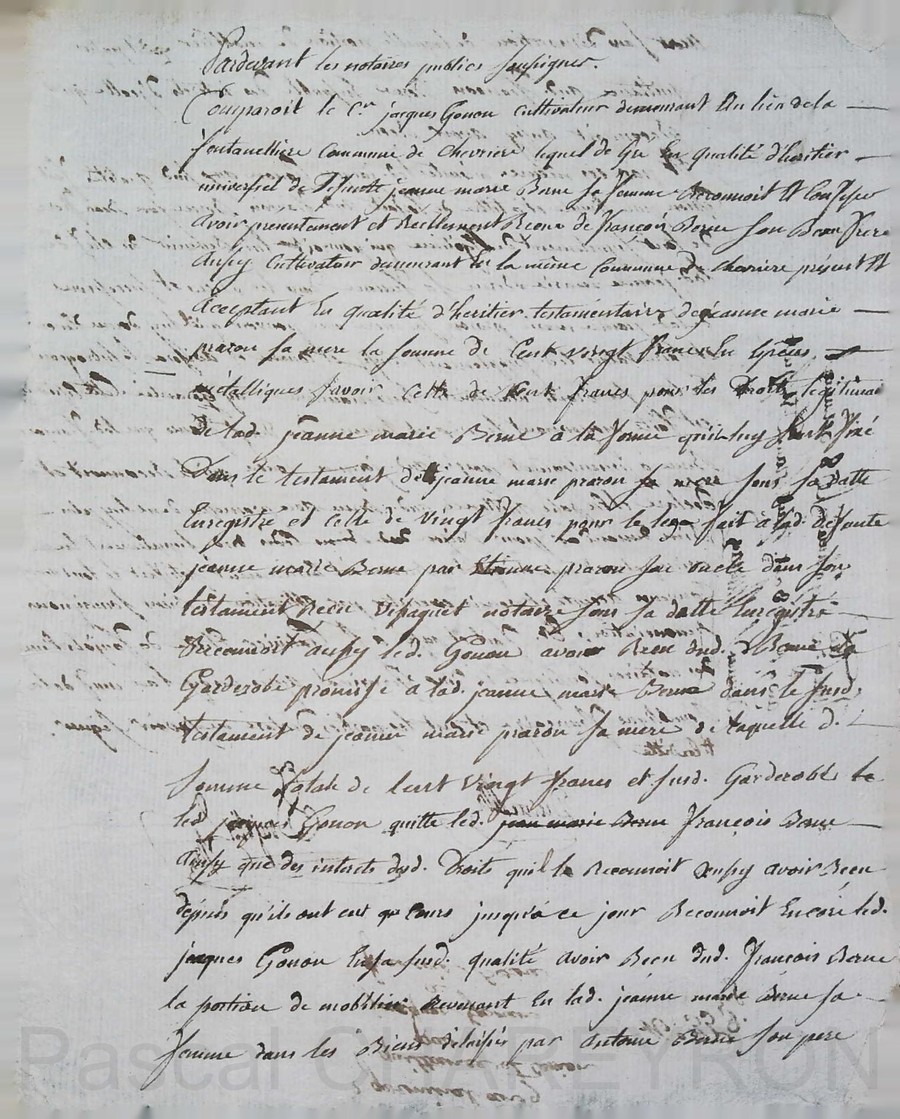 Pardevant les notaires publics soussignes.
Comparoit le Cen jacques Gonon cultivateur demeurant au lieu de la
fontanelliere Commune de Chevriere lequel de Gré en qualité d'heritier
universel de deffunte jeanne marie Berne sa femme Reconnoit et Confesse
avoir presentement et Reellement Receu de françois Berne son Beau frere
aussy Cultivateur demeurant en la même Commune de Chevriere présent et
acceptant En qualité d'heritier testamentaire de jeanne marie
prazon sa mere la somme de Cent vingt francs En Especes
métalliques savoir Celle de Cent francs pour les Droits legitimai
de lad. jeanne marie Berne à la forme qu'il luy sont fixé
Dans le testament de jeanne marie prazon sa mere sous sa datte
Enregistré et Celle de vingt francs pour le legs fait à lad. deffunte
jeanne marie Berne par Etienne prazon son oncle dans son
testament Receu notaire sous sa datte Enregistré
Reconnoit aussy led. Gonon avoir Receu dud. Berne la
Garderobe promise à lad. jeanne marie Berne dans le susd.
testament de jeanne marie prazon sa mere de laquelle d.
Somme totale de Cent vingt francs et susd. Garderobe le
led. jacques Gonon quitte led. jean marie Berne françois Berne
aussy que des interets dud. Droits qu'il le Reconnoit aussy avoir Receu
depuis qu'ils ont eut cours jusqu'a ce jour Reconnoit Encore led.
jacques Gonon En sa susd. qualité avoir Receu dud. françois Berne
la portion de mobilier Revenant En lad. jeanne marie Berne sa
femme dans les Biens délaissés par antoine Berne son pere
Pascal CHAREYRON